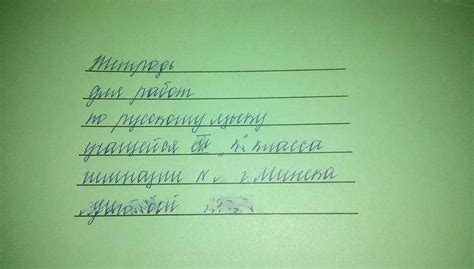 Тетрадь
для работ
по русскому языку
учащейся III "к" класса
гимназии № г. Минска